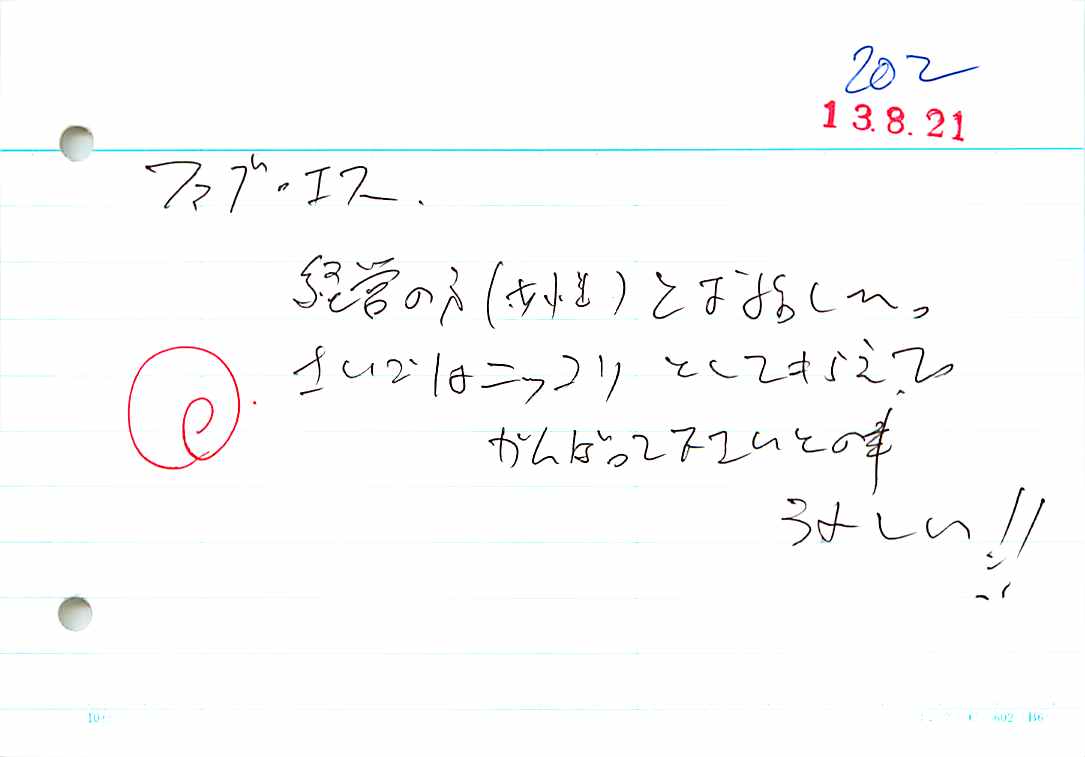 202
13.8.21
ファブ・エス.
経営の方(女性)とお話し
さいごはニッコリ として
がんばって下さいとの事
うれしい!!